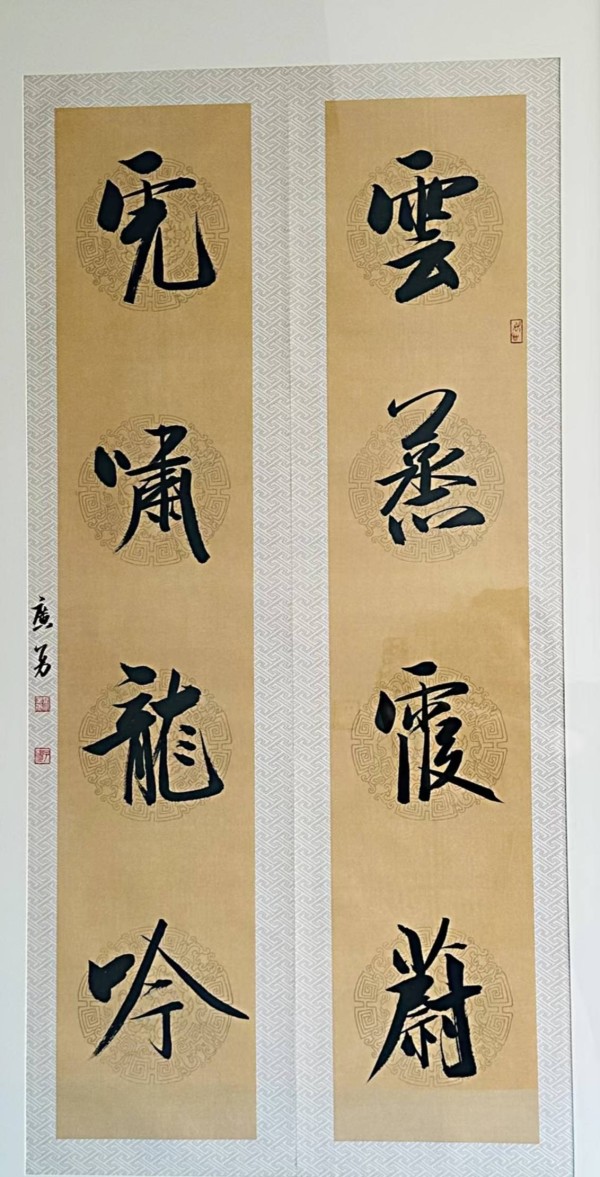 雲蒸霞蔚
虎嘯龍吟
廣勇